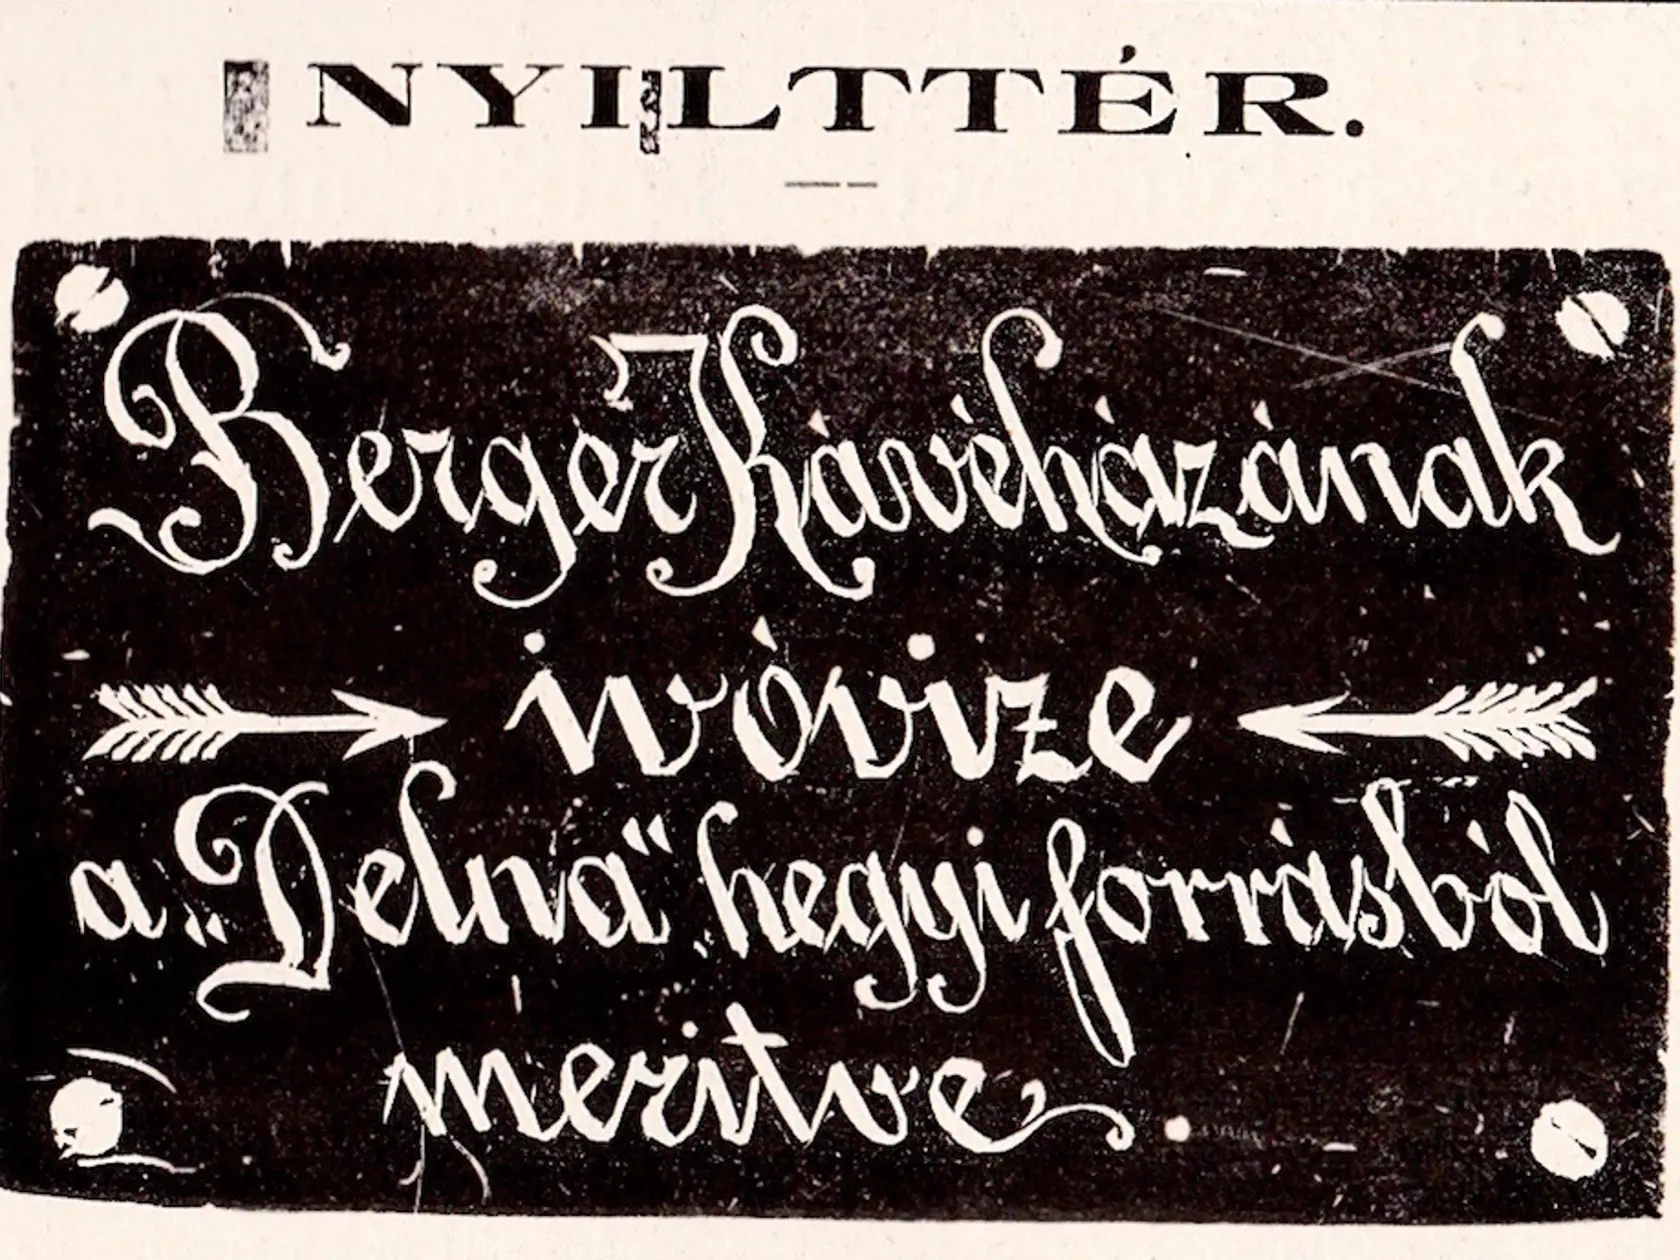 NYILTTÉR.
Berger Kávéházának
ivóvize
a „Delna“ hegyi forrásból
meritve.